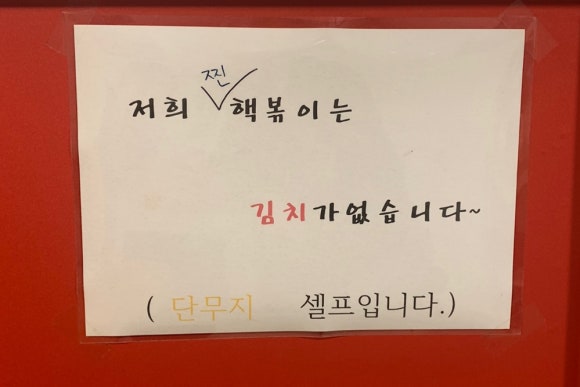 저희 찐핵볶이는
김치가없습니다~
( 단무지 셀프입니다.)